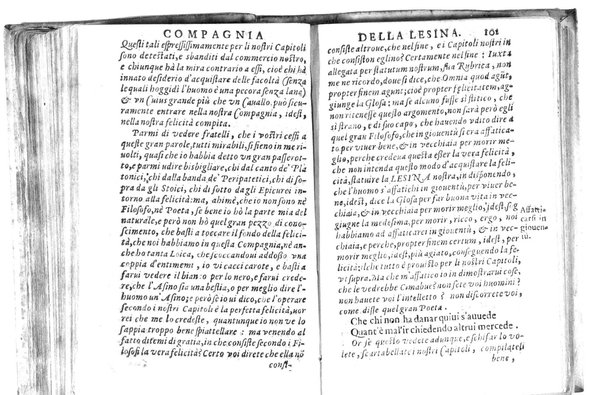 COMPAGNIA
Questi tali espressissimamente per li nostri Capitoli
sono detestati, e sbanditi dal commercio nostro,
e chiunque hà la mira contrario a essi, cioè chi hà
innato desiderio d'acquistare delle facoltà (senza
le quali hoggidi l'huomo è una pecora senza lana)
& un Cuius grande più che un Cauallo, può sicu-
ramente entrare nella nostra Compagnia, idest,
nella nostra felicità compita.
Parmi di vedere fratelli, che i vostri cessi a
queste gran parole, tutti mirabili, si sieno in me ri-
uolti, quasi che io habbia detto un gran passerot-
to, e parmi udire bisbigliare, chi dal canto de' Pla
tonici, chi dalla banda de' Peripatetici, chi di so-
pra da gli Stoici, chi di sotto dagli Epicurei in-
torno alla felicità: ma, ahimè, che io non sono nè
Filosofo, nè Poeta, se bene io hò la parte mia del
naturale, e però hò quel gran pezzo di cono-
scimento, che basti a toccare il fondo della felici-
tà, che noi habbiamo in questa Compagnia, nè an
che ho tanta Loica, che scoccandoui addosso una
coppia d'entimemi, io vi cacci carote, e basti a
farui vedere il bianco per lo nero, e farui crede-
re, che l'Asino sia una bestia, o per meglio dire l'-
huomo un'Asino; e però se io ui dico, che l'operare
secondo i nostri Capitoli è la perfetta felicità, vor
rei che me lo credeste, quantunque io non ve lo
sappia troppo bene spiattellare: ma venendo al
fatto ditemi di gratia, in che consiste secondo i Fi-
losofi la vera felicità? Certo voi direte che ella nō
consi-
DELLA LESINA. 101
consiste altroue, che nel fine, e i Capitoli nostri in
che consiston eglino? Certamente nel fine: Iuxta
allegata per statutum nostrum, sua Rubrica, non
me ne ricordo, doue si dice, che Omnia quod agit,
propter finem agunt; cioè propter felicitatem, ag-
giunge la Glosa; ma se alcuno fusse sì stitico, che
non ritenesse questo argomento, non sarà però egli
sì strano, e di suo capo, che hauendo udito dire a
quel gran Filosofo, che in giouentù si era affatica-
to per viuer bene, & in vecchiaia per morir me-
glio, perche credeua questa esser la vera felicità,
che non intenda questo modo d'acquistare la feli-
cità, statuire la LESINA nostra, in disponendo,
che l'huomo s'affatichi in giouentù, per viuer be-
ne, idest, dice la Glosa per far buona vita in vec-
chiaia, & in vecchiaia per morir meglio, idest, sog
giugne la medesima, per morir, ricco, ergo, noi
habbiamo ad affaticarci in giouentù, & in vec-
chiaia, e perche, propter finem certum, idest, per
morir meglio, idest, più agiato, conseguendo la fe-
licità: il che tutto è prouisto per li nostri Capitoli,
vt supra. Ma che m'affatico io in dimostrarui cose,
che le vedrebbe Cimabue? non sete voi huomini?
non hauete voi l'intelletto? non discorrete voi,
come disse quel gran Poeta.
Affati-
carsi in
giouen-
tù.
Che chi non ha danar quiui s'auuede
Quant'è mal'ir chiedendo altrui mercede.
Or se questo vedete adunque, e schifar lo vo-
lete, scartabellate i nostri Capitoli, compilateli
bene,